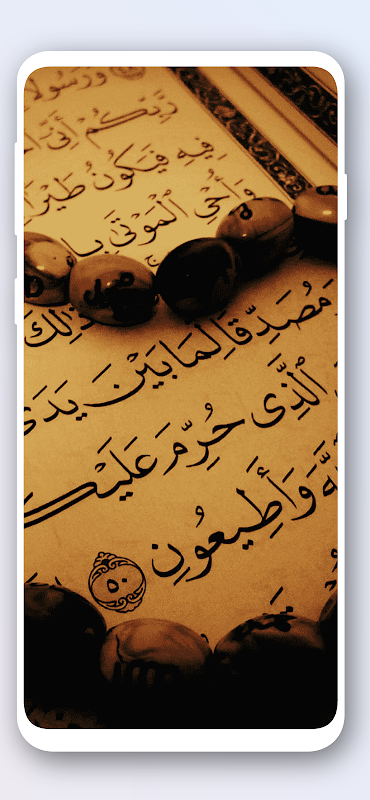 وَرَسُولًا
رَّبِّكُمْ أَنِّىٓ
فِيهِ فَيَكُونُ طَيْرًا
وَأُحْىِ ٱلْمَوْتَىٰ بِإ
ذَٰلِكَ
مُصَدِّقًا لِّمَا بَيْنَ يَدَىَّ
ٱلَّذِى حُرِّمَ عَلَيْكُ
وَأَطِيعُونِ ٥٠